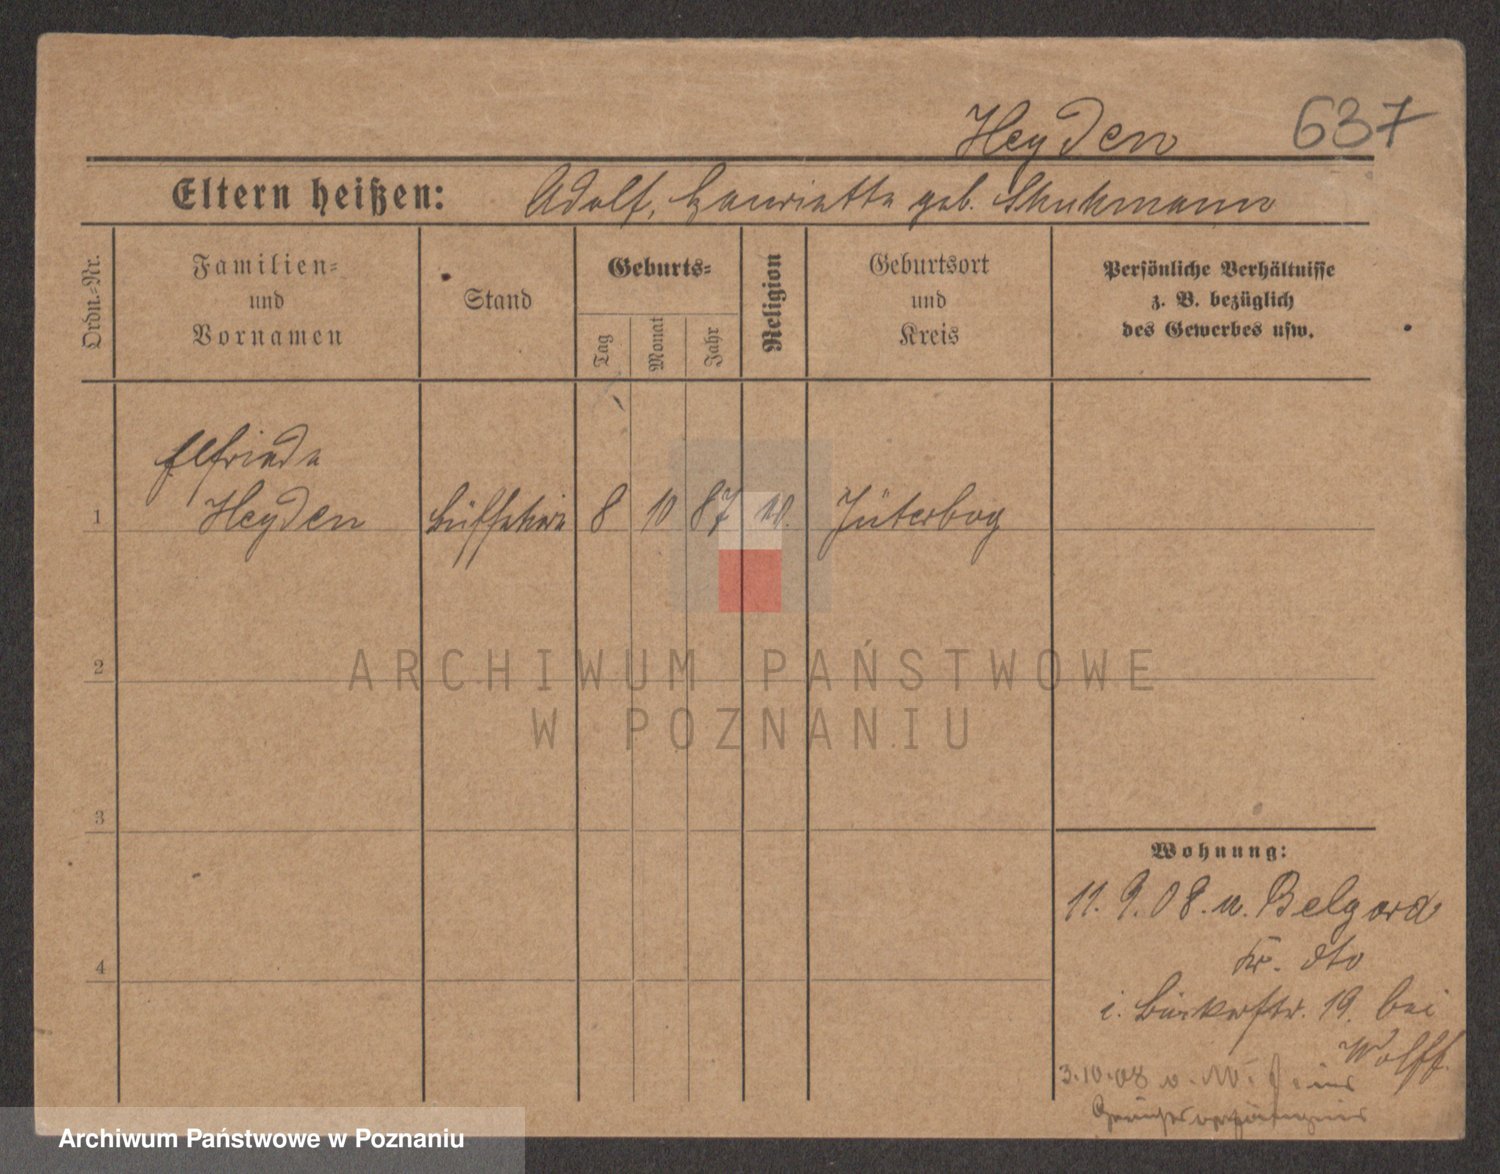 Heyden 637
Eltern heißen: Adolf, Henriette geb. Schuhmann
Ordn.-Nr.
Familien-
und
Vornamen
Stand
Geburts-
Tag
Monat
Jahr
Religion
Geburtsort
und
Kreis
Persönliche Verhältnisse
z. B. bezüglich
des Gewerbes usw.
Elfriede
1 Heyden 8 10 87 Jüterbog
2
3
4
Wohnung:
11. 9. 08. n. Belgard
Kr. dto
i. 19. bei
Wolff.
3.10.08
ARCHIWUM PAŃSTWOWE
W POZNANIU
Archiwum Państwowe w Poznaniu